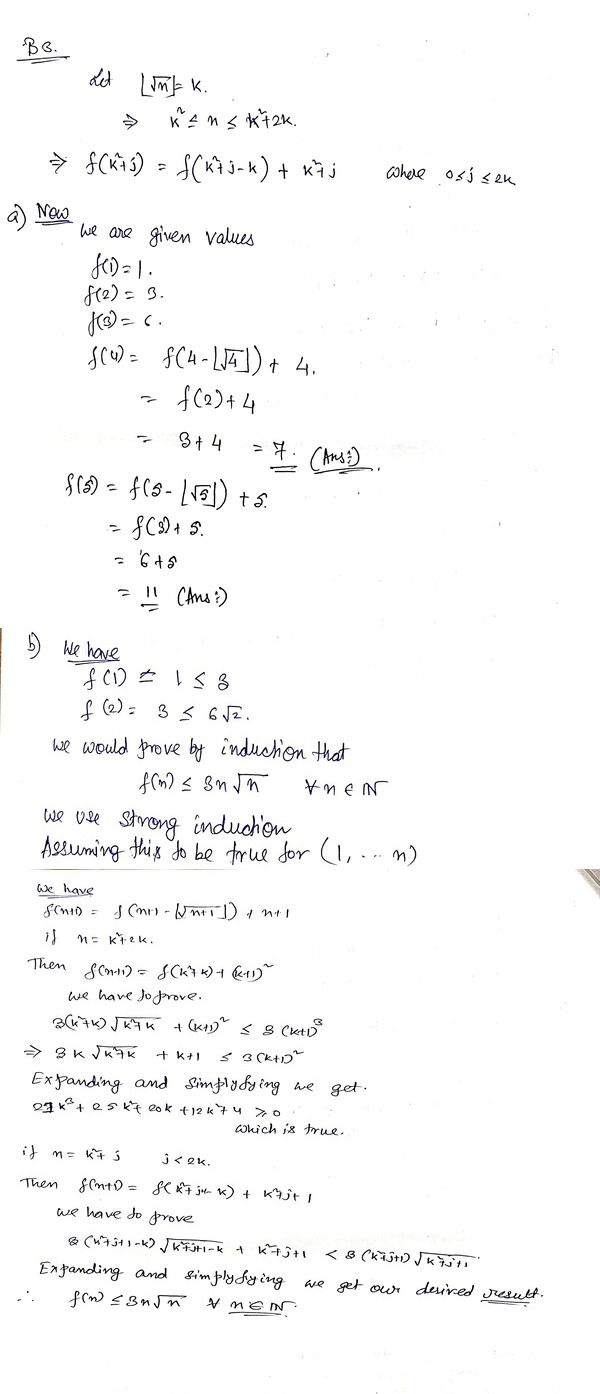 B3.
Let ⌊√n⌋ = k.
⇒ k² ≤ n ≤ k²+2k.
⇒ f(k²+j) = f(k²+j-k) + k²+j where 0≤j≤2k
a) Now
we are given values
f(1) = 1.
f(2) = 3.
f(3) = 6.
f(4) = f(4-⌊√4⌋) + 4.
= f(2)+4
= 3+4 = 7. (Ans:)
f(5) = f(5-⌊√5⌋) + 5.
= f(3)+5.
= 6+5
= 11 (Ans:)
b) We have
f(1) = 1 ≤ 3
f(2) = 3 ≤ 6√2.
we would prove by induction that
f(n) ≤ 3n√n ∀ n ∈ ℕ
we use strong induction
Assuming this to be true for (1, ... n)
we have
f(n+1) = f(n+1-⌊√n+1⌋) + n+1
if n = k²+2k.
Then f(n+1) = f(k²+k)+(k+1)²
we have to prove.
3(k²+k)√k²+k + (k+1)² ≤ 3(k+1)³
⇒ 3k√k²+k + k+1 ≤ 3(k+1)²
Expanding and simplyfying we get.
≥ 0
which is true.
if n = k²+j j<2k.
Then f(n+1) = f(k²+j+1-k) + k²+j+1
we have to prove
3(k²+j+1-k)√k²+j+1-k + k²+j+1 < 3(k²+j+1)√k²+j+1.
Expanding and simplyfying we get our desired result.
∴ f(n) ≤ 3n√n ∀ n∈ℕ.